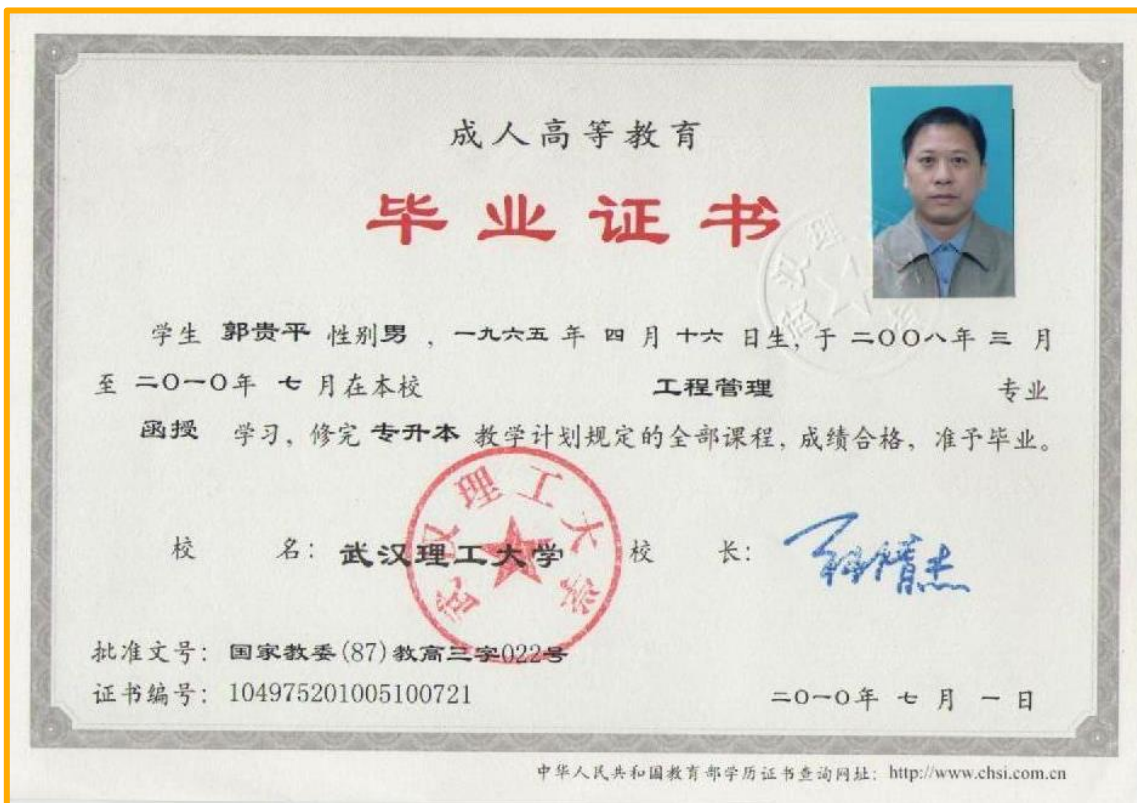 成人高等教育
毕业证书
学生 郭贵平 性别男，一九六五 年 四 月 十六 日生，于 二〇〇八年 三 月
至 二〇一〇年 七 月在本校 工程管理 专业
函授 学习，修完 专升本 教学计划规定的全部课程，成绩合格，准予毕业。
武汉理工大学
校 名：武汉理工大学 校 长：
批准文号：国家教委(87)教高三字022号
证书编号：104975201005100721 二〇一〇年 七 月 一 日
中华人民共和国教育部学历证书查询网址：http://www.chsi.com.cn